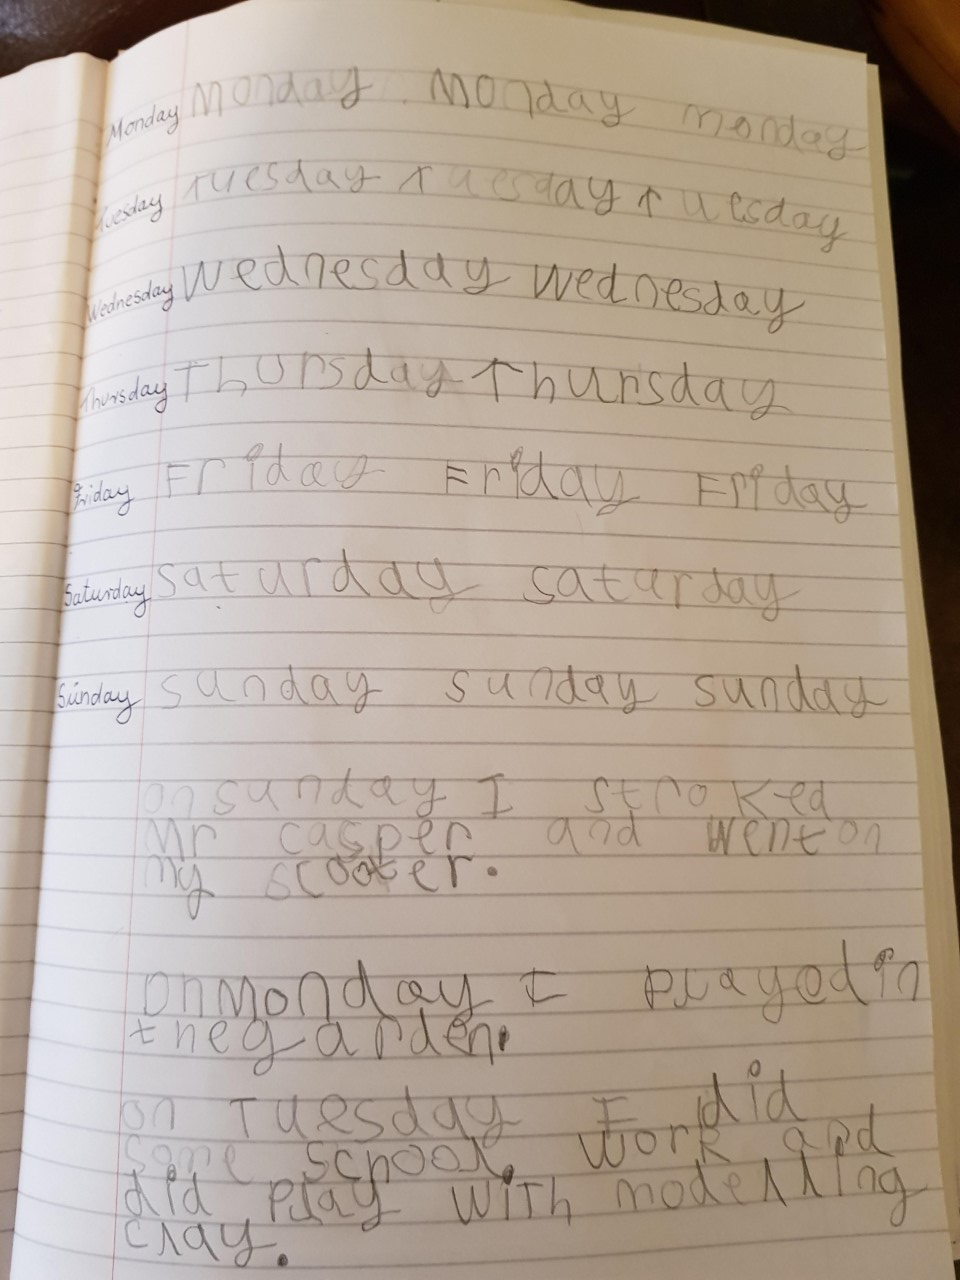 Monday Monday Monday monday
Tuesday Tuesday Tuesday Tuesday
Wednesday Wednesday Wednesday
Thursday Thursday Thursday
Friday Friday Friday Friday
Saturday saturday saturday
Sunday sunday sunday sunday
on sunday I stroked
Mr casper and went on
my scooter.
on Monday I played in
the garden.
on Tuesday I did
some school. work and
did play with modelling
clay.